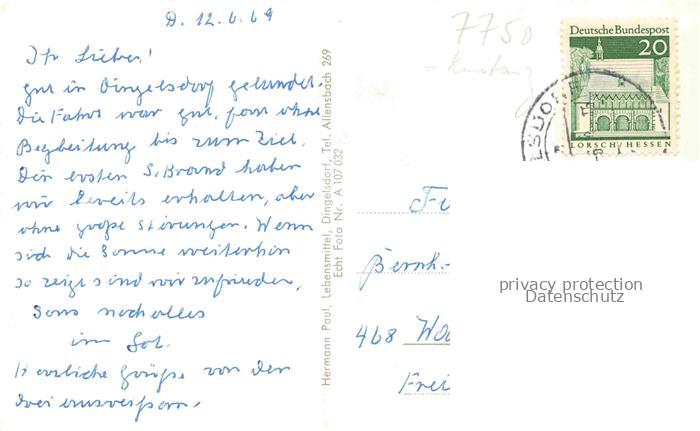 D. 12.6.69
Ihr Lieben!
gut in Dingelsdorf gelandet.
Die Fahrt war gut, fast ohne
Begleitung bis zum Ziel.
Den ersten S. Brand haben
wir bereits erhalten, aber
ohne große Störungen. Wenn
sich die Sonne weiterhin
so zeigt sind wir zufrieden.
Sonst noch alles
im Lot.
Herzliche Grüße von den
drei
Hermann Paul, Lebensmittel, Dingelsdorf, Tel. Allensbach 269
Echt Foto Nr. A 107/032
7750
Konstanz
Deutsche Bundespost
20
LORSCH/HESSEN
Bernh.-
468
Frei
privacy protection
Datenschutz